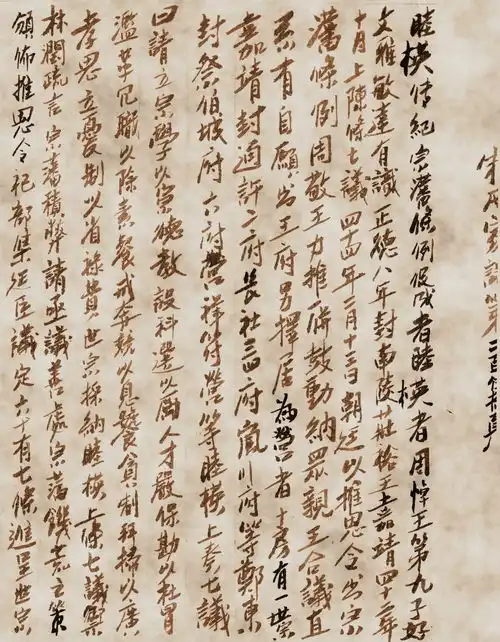 睦㮮傳紀宗藩條例促成者睦㮮者周悼王第九子好
文雅敏達有識正德八年封南陵莊裕王嘉靖四十年
十月上陳條七議四十四年二月十三日朝廷以推恩令出宗
藩條例周敬王力推併鼓動納眾親王合議直
系有自願出王府另擇居為營者十房有一營
嘉靖封適評二府長社三四府嵐川府等鄭東
封祭伯城府六府營祥符營等睦㮮上奏七議
曰請立宗學以崇德教設科選以勵人才嚴保勘以杜冒
濫革冗職以除素餐戒奔競以息饕貪制拜掃以廣
孝思立憂制以省祿費世宗採納睦㮮上條七議案
林潤疏言宗藩積弊請亟議善處宗藩饑荒之策
頒佈推恩令祀部集廷臣議定六十有七條進呈世宗